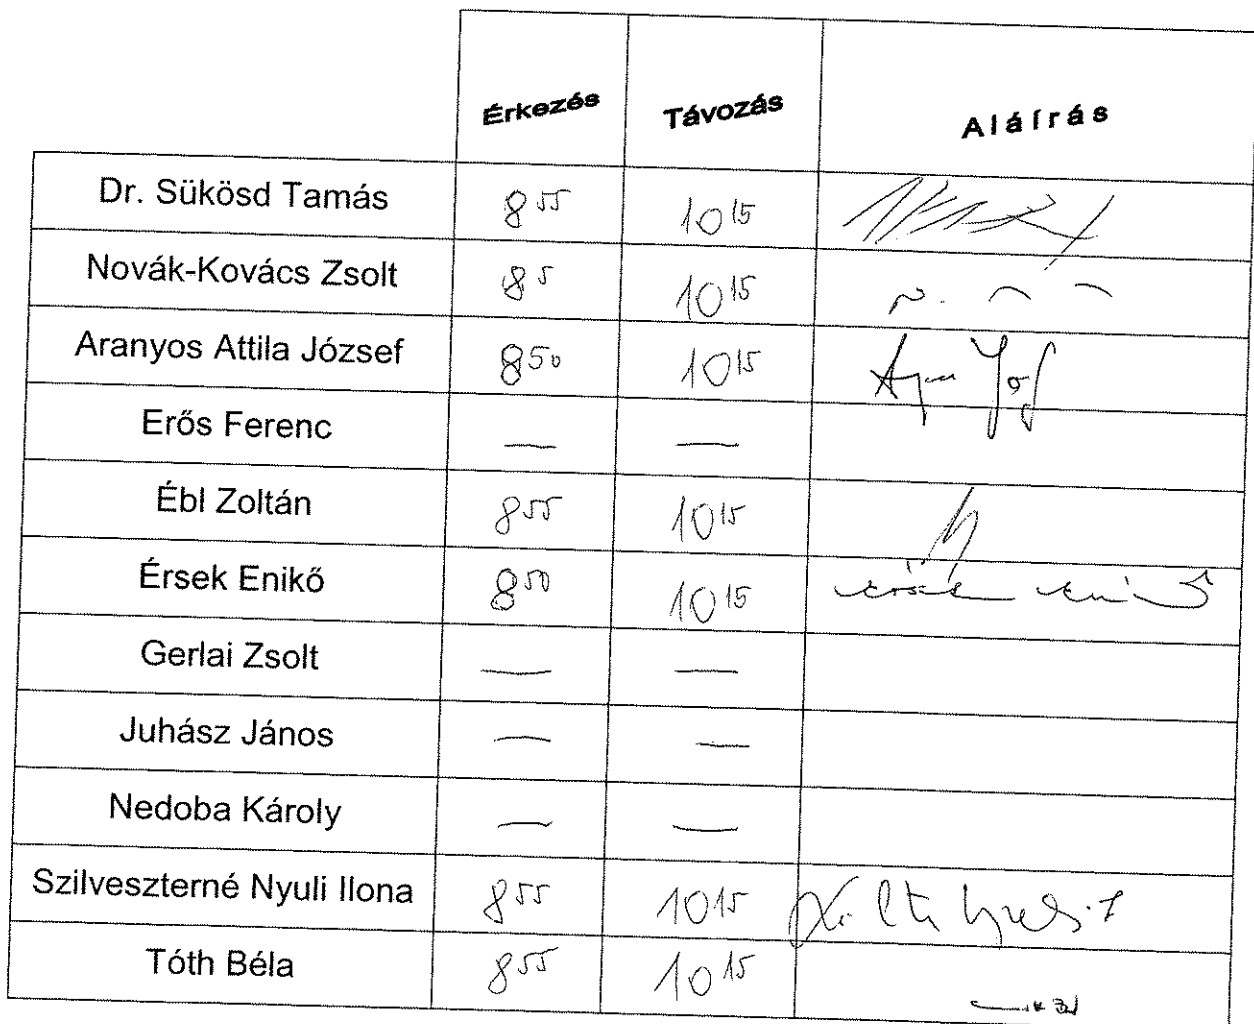 Érkezés Távozás Aláírás
Dr. Sükösd Tamás 8 55 10 15
Novák-Kovács Zsolt 8 5 10 15
Aranyos Attila József 8 50 10 15
Erős Ferenc — —
Ébl Zoltán 8 55 10 15
Érsek Enikő 8 50 10 15 Érsek Enikő
Gerlai Zsolt — —
Juhász János — —
Nedoba Károly — —
Szilveszterné Nyuli Ilona 8 55 10 15
Tóth Béla 8 55 10 15